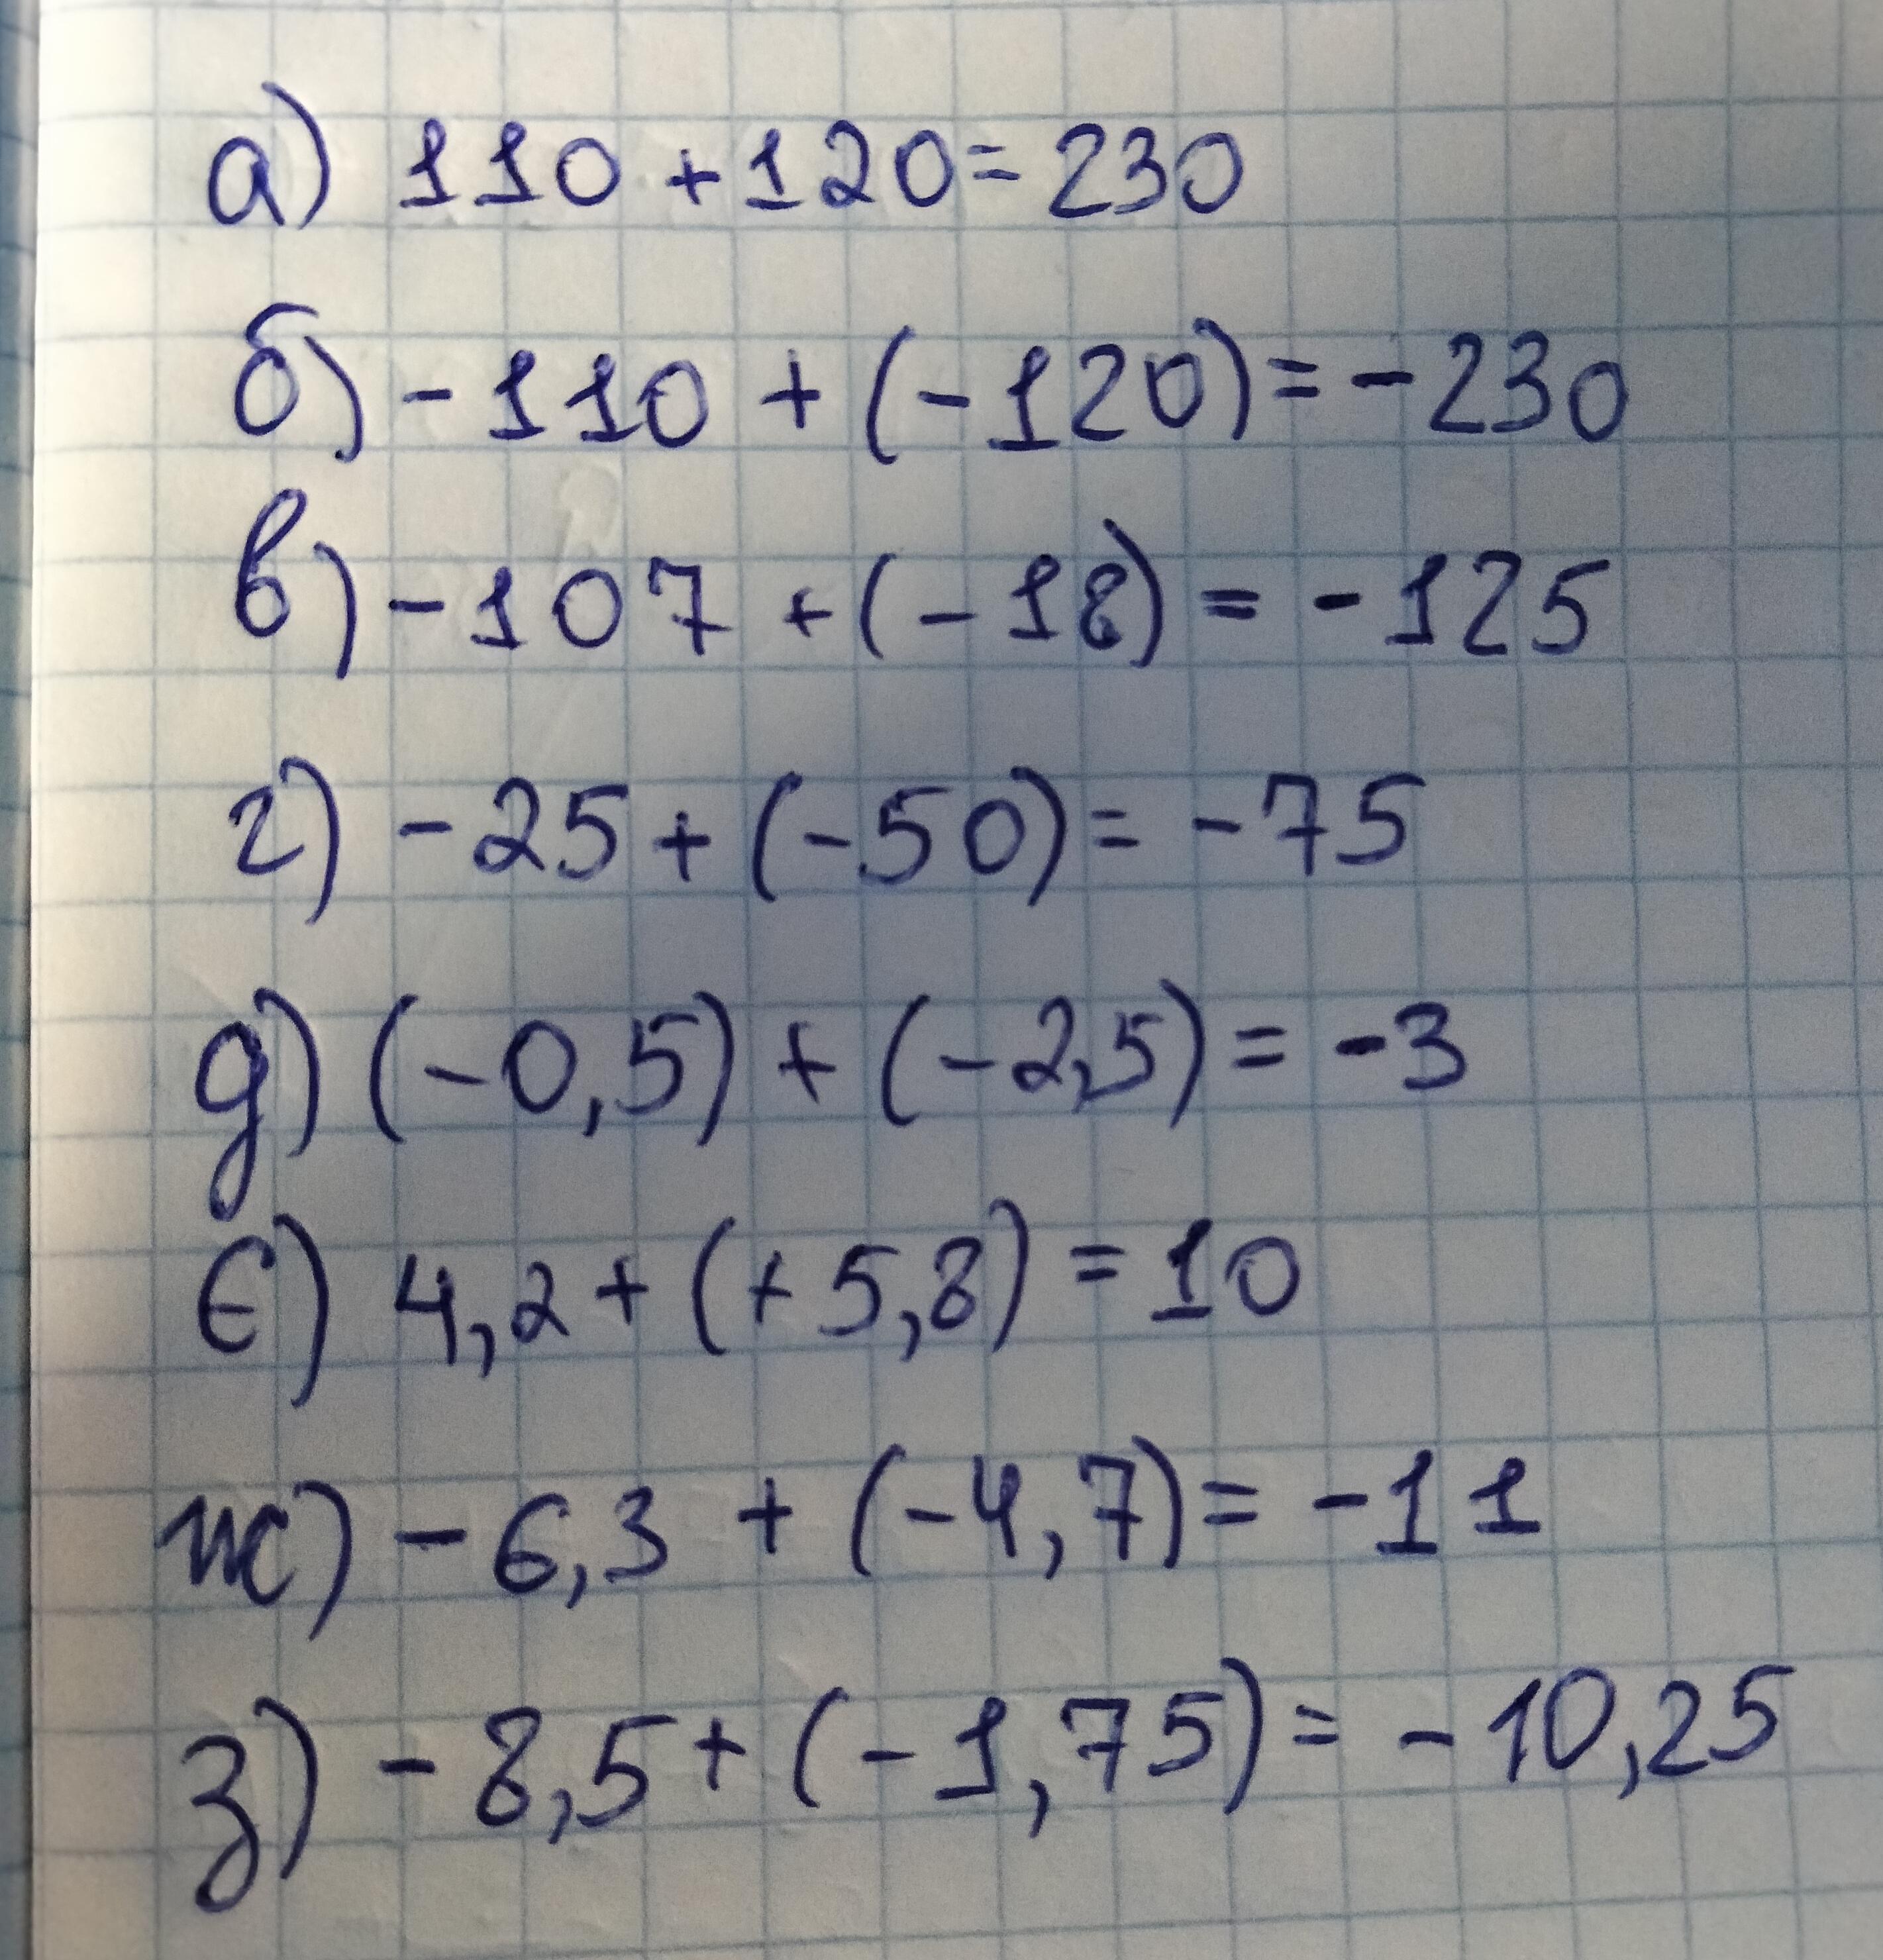 а) 110 + 120 = 230
б) -110 + (-120) = -230
в) -107 + (-18) = -125
г) -25 + (-50) = -75
д) (-0,5) + (-2,5) = -3
є) 4,2 + (+5,8) = 10
ж) -6,3 + (-4,7) = -11
з) -8,5 + (-1,75) = -10,25